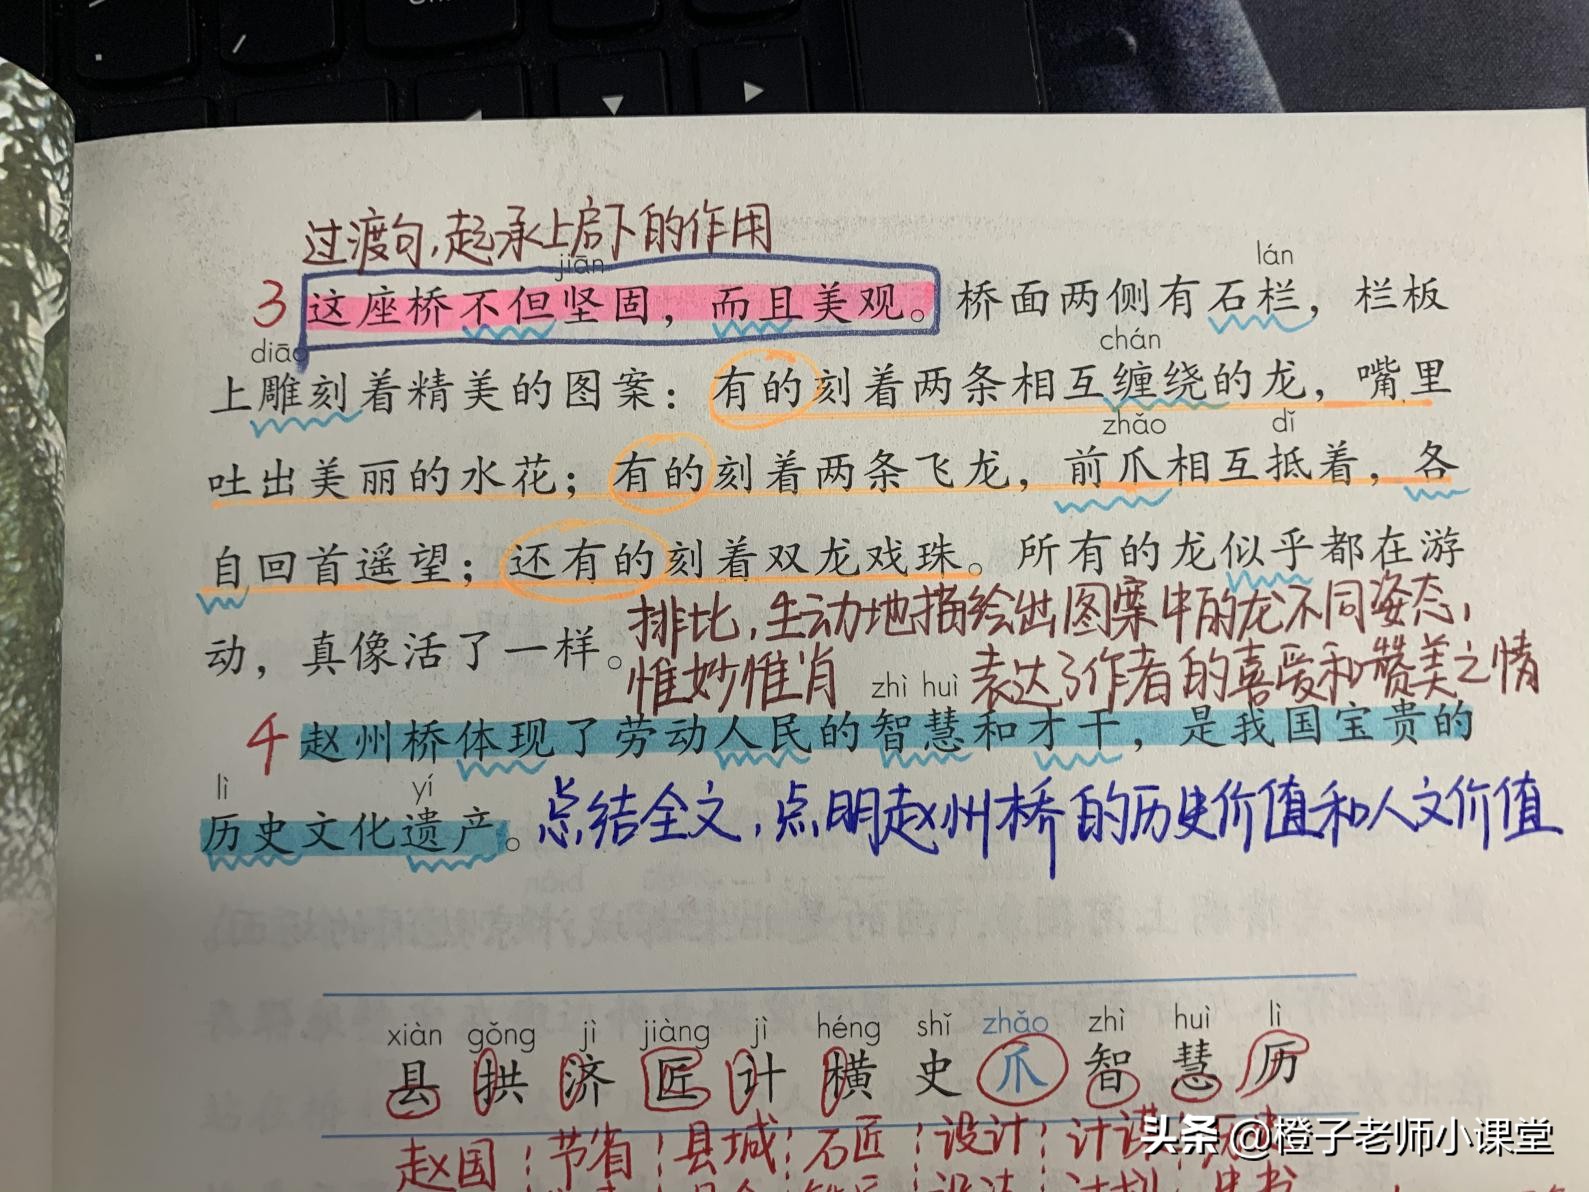 过渡句，起承上启下的作用
jiān
lán
3 这座桥不但坚固，而且美观。桥面两侧有石栏，栏板
diāo
chán
上雕刻着精美的图案：有的刻着两条相互缠绕的龙，嘴里
zhǎo
dǐ
吐出美丽的水花；有的刻着两条飞龙，前爪相互抵着，各
自回首遥望；还有的刻着双龙戏珠。所有的龙似乎都在游
排比，生动地描绘出图案中的龙不同姿态，
动，真像活了一样。
惟妙惟肖
表达了作者的喜爱和赞美之情
zhì huì
4 赵州桥体现了劳动人民的智慧和才干，是我国宝贵的
lì
yí
历史文化遗产。
总结全文，点明赵州桥的历史价值和人文价值
xiàn gǒng jì jiàng jì héng shǐ zhǎo zhì huì lì
县 拱 济 匠 计 横 史 爪 智 慧 历
赵国 节省 县城 石匠 设计
头条 @橙子老师小课堂